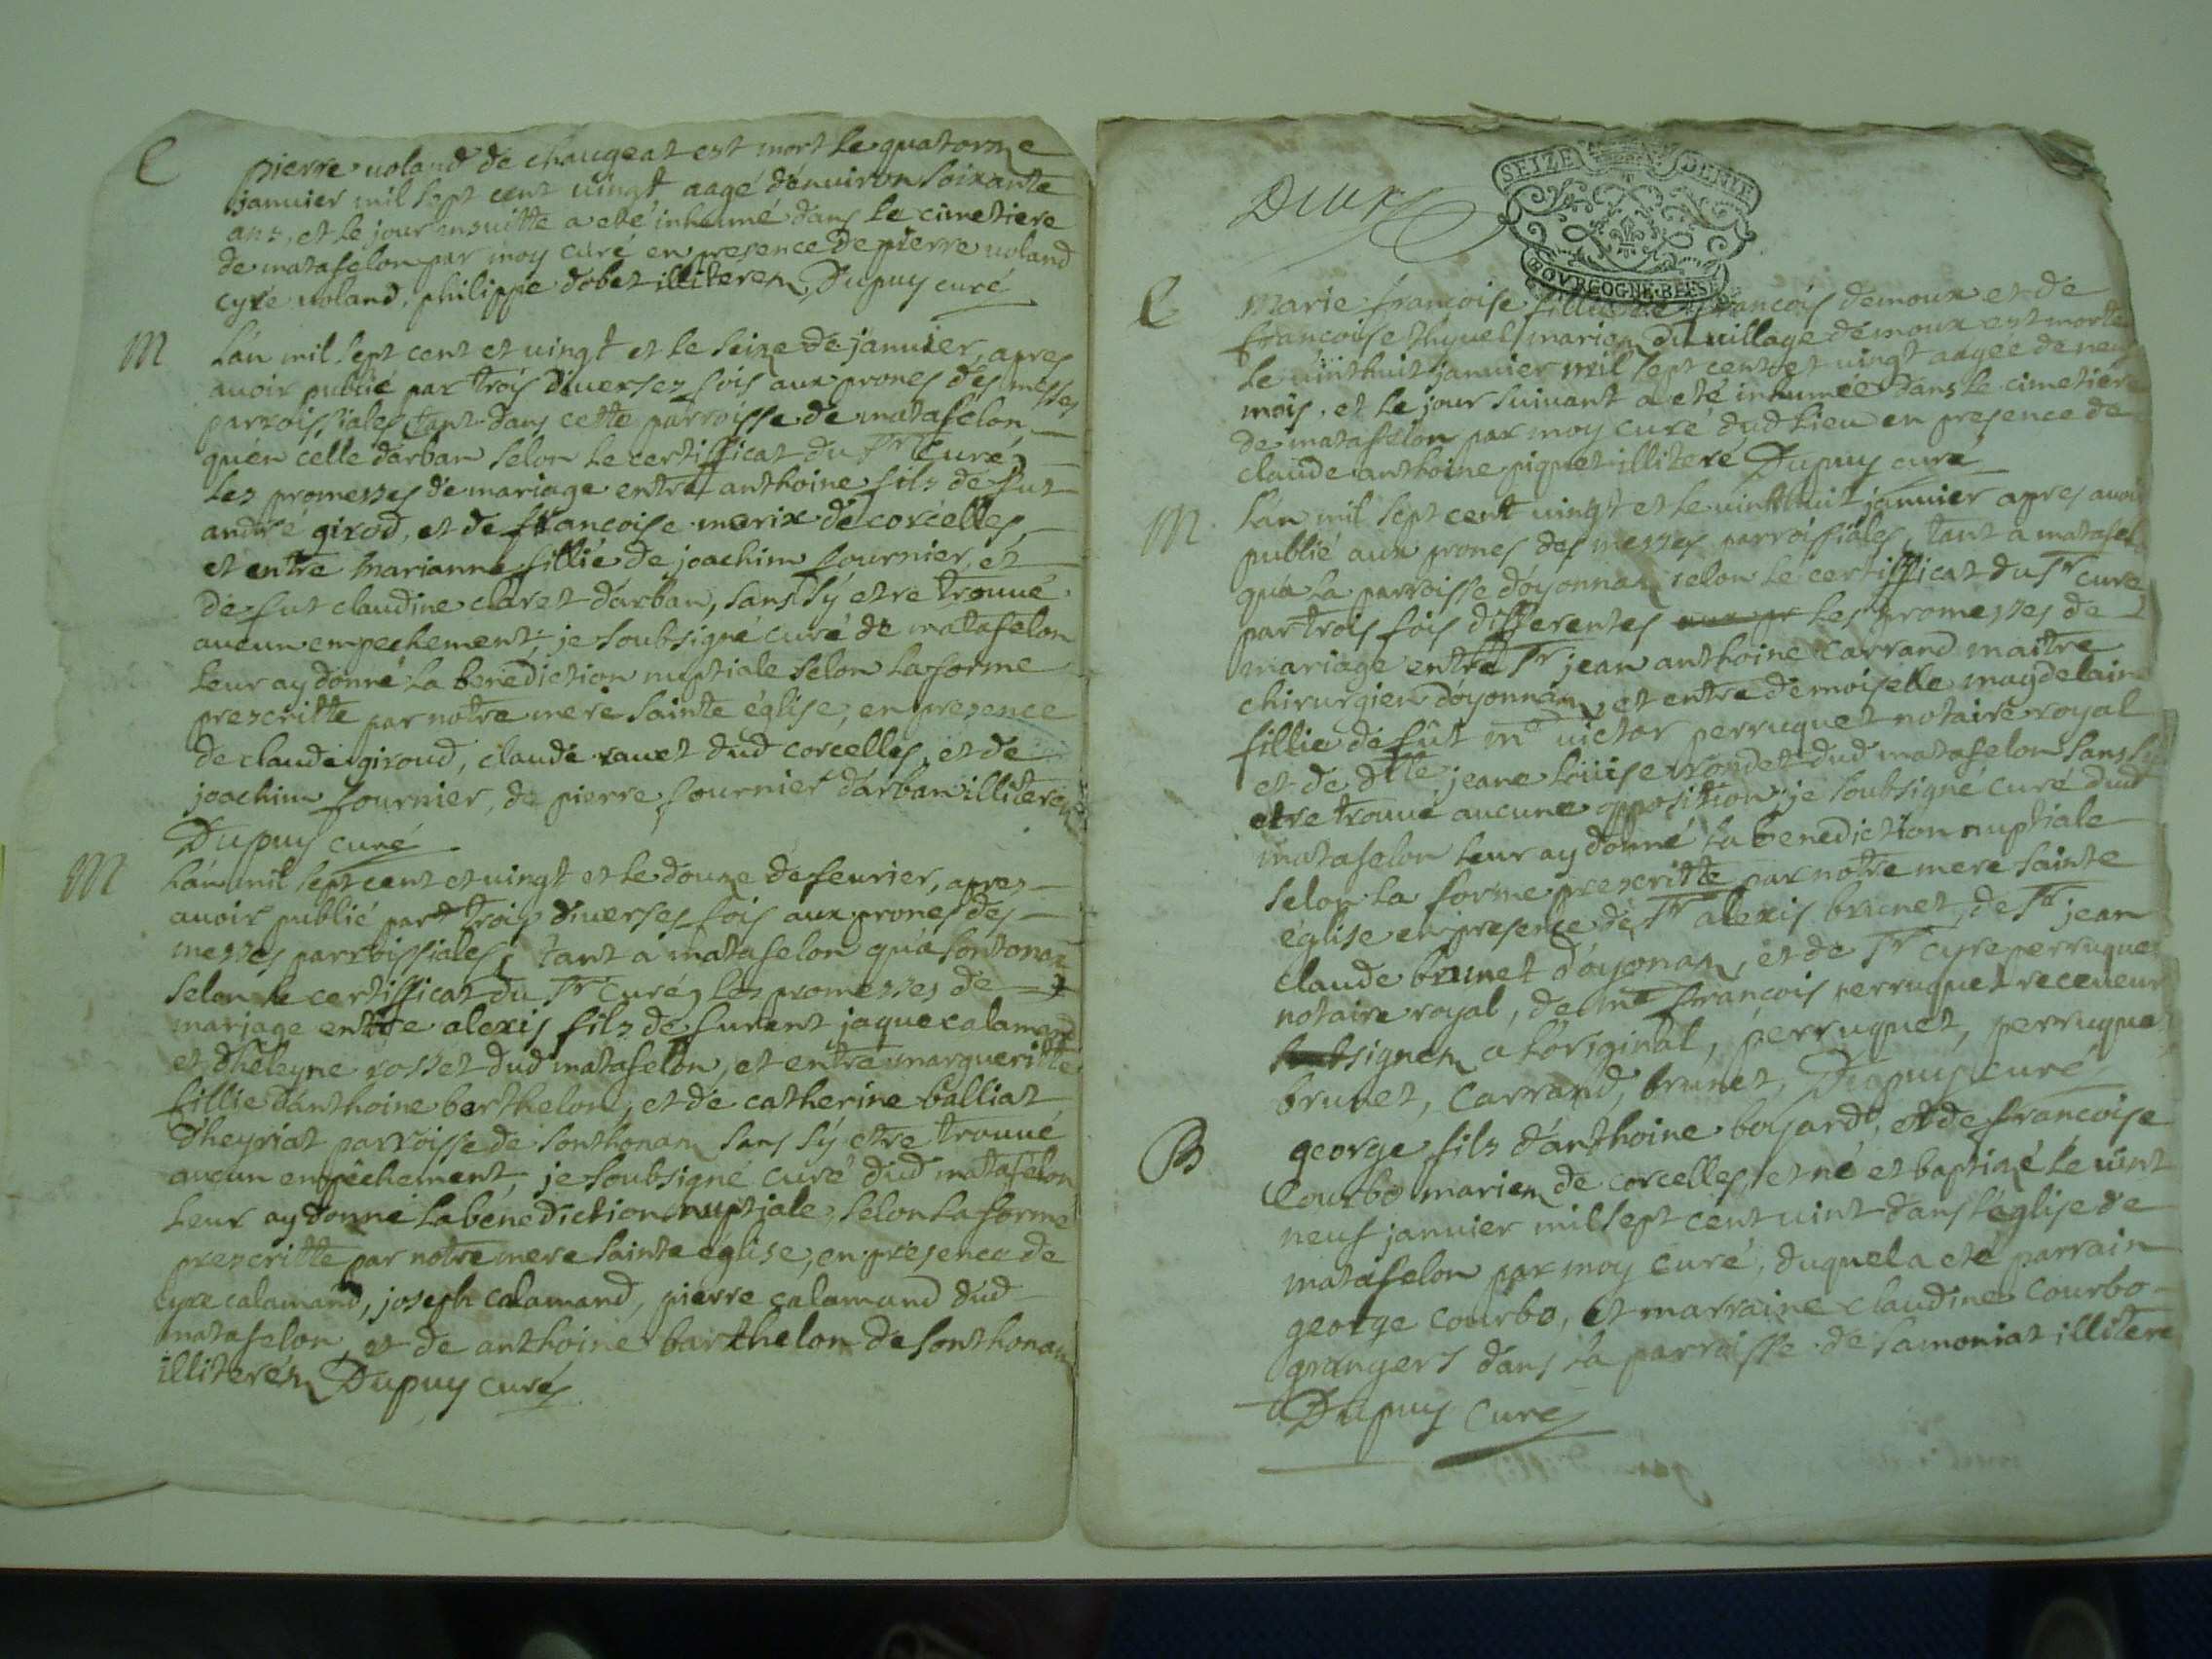 C
pierre uoland de chaugeat est mort le quatorze
januier mil sept cent uingt aagé d'enuiron soixante
ans, et le jour ensuitte a eté inhumé dans le cimetiere
de matafelon par moy curé en presence de pierre uoland
cyre uoland, philippe dobet illiterez Dupuy curé
M
L'an mil sept cent et uingt et le seize de januier, apres
auoir publié par trois diuerses fois aux prones des messes
parroissiales tant dans cette parroisse de matafelon
qu'en celle d'arban selon le certifficat du Sr Curé,
les promesses de mariage entre anthoine fils de fut
andré girod, et de francoise marix de corcelles,
et entre marianne fillie de joachim fournier, et
de fut claudine claret d'arban, sans s'y etre trouué
aucun empechement, je soubsigné curé de matafelon
leur ay donné la benediction nuptiale selon la forme
prescritte par notre mere sainte église, en presence
de claude giroud, claude rauet dud corcelles, et de
joachim fournier, de pierre fournier d'arban illiterez
Dupuy curé
M
L'an mil sept cent et uingt et le douze de feurier, apres
auoir publié par trois diuerses fois aux prones des
messes parroissiales, tant a matafelon qu'a sontonax
selon le certifficat du Sr Curé, les promesses de
mariage entre alexis fils de furent jaque calamand
et d'heleyne rosset dud matafelon, et entre margueritte
fillie d'anthoine barthelon, et de catherine balliat
d'heyriat parroisse de sonthonax sans s'y etre trouué
aucun empêchement, je soubsigné curé dud matafelon
leur ay donné la bénediction nuptiale, selon la forme
prescritte par notre mere sainte église, en presence de
cyre calamand, joseph calamand, pierre calamand dud
matafelon, et de anthoine barthelon de sonthonax
illiterés Dupuy curé
Deux
SEIZE DENIE
BOVRGOGNE BRESSE
C
Marie francoise fillie de francois demoux et de
francoise mariez du uillage de moux est morte
le uinthuit januier mil sept cent et uingt aagée de neuf
mois, et le jour suiuant a eté inhumée dans le cimetiére
de matafelon par moy curé dud lieu en presence de
claude anthoine piquet illiteré Dupuy curé
M
L'an mil sept cent uingt et le uinthuit januier apres auoir
publié aux prones des messes parroissiales, tant a matafel
qu'a la parroisse d'oyonnax selon le certifficat du Sr curé
par trois fois differentes les promesses de
mariage entre Sr jean anthoine Carrand maitre
chirurgien d'oyonnax, et entre demoiselle magdelain
fillie de fût me uictor perruquet notaire royal
et de dlle jeane louise rondet dud matafelon sans s'y
etre trouué aucune opposition, je soubsigné curé dud
matafelon leur ay donné la benediction nuptiale
selon la forme prescritte par notre mere sainte
église en presence de Sr alexis brunet, de Sr jean
claude brunet d'oyonax, et de Sr cyre perruquet
notaire royal, de me francois perruquet receueur
signez a l'original, perruquet, perruquet,
brunet, Carrand, brunet, Dupuy curé
B
george fils d'anthoine bojard, et de francoise
Courbo mariez de corcelles, et né et baptizé le uint
neuf januier mil sept cent uint dans l'église de
matafelon par moy curé, duquel a eté parrain
george courbo, et marraine claudine courbo
grangers dans la parroisse de samoniat illiteré
Dupuy curé